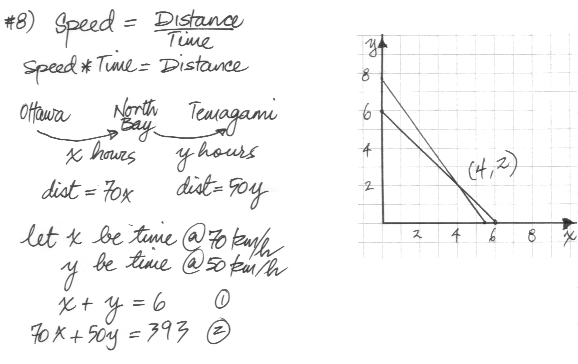 #8) Speed = Distance
Time
Speed * Time = Distance
Ottawa North Bay Temagami
x hours y hours
dist = 70x dist = 50y
let x be time @ 70 km/h
y be time @ 50 km/h
x + y = 6 ①
70x + 50y = 393 ②
y
8
6
4
2
(4,2)
2 4 6 8 x